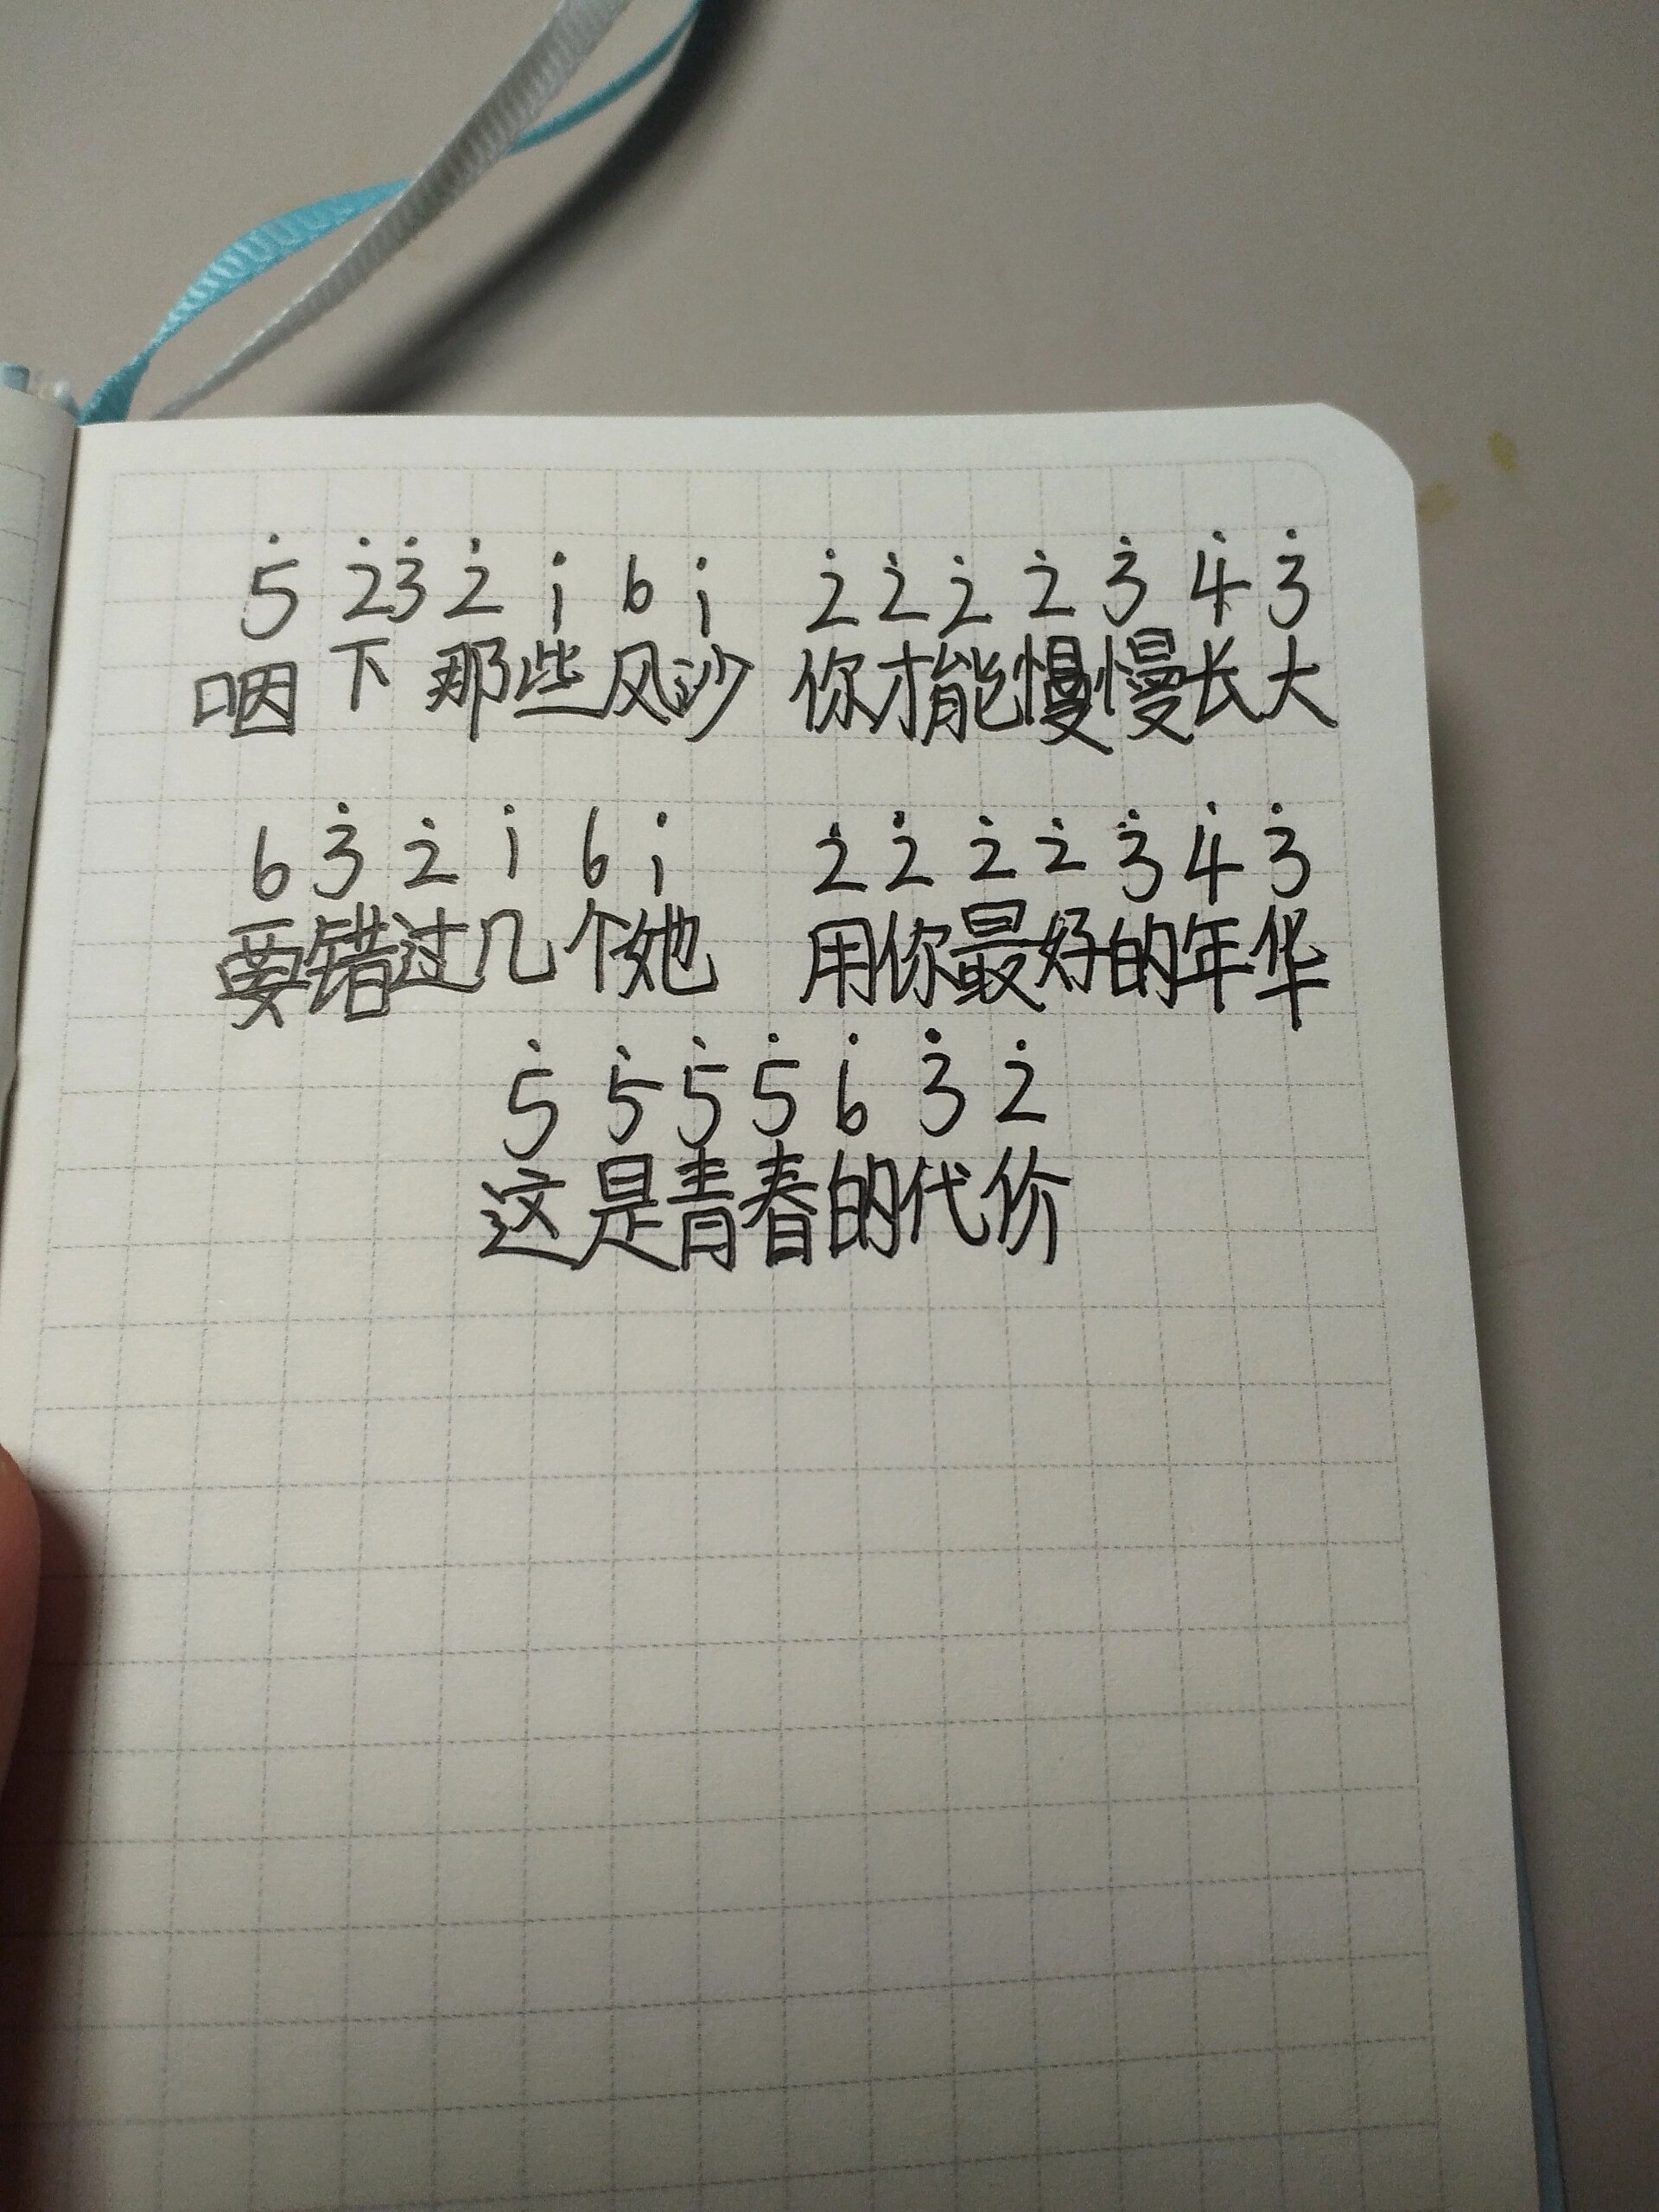 5̇ 2̇3̇ 2̇ 1̇ 6 1̇ 2̇ 2̇ 2̇ 2̇ 3̇ 4̇ 3̇
咽下那些风沙 你才能慢慢长大
6 3̇ 2̇ 1̇ 6 1̇ 2̇ 2̇ 2̇ 2̇ 3̇ 4̇ 3̇
要错过几个她 用你最好的年华
5̇ 5̇ 5̇ 5̇ 6̇ 3̇ 2̇
这是青春的代价